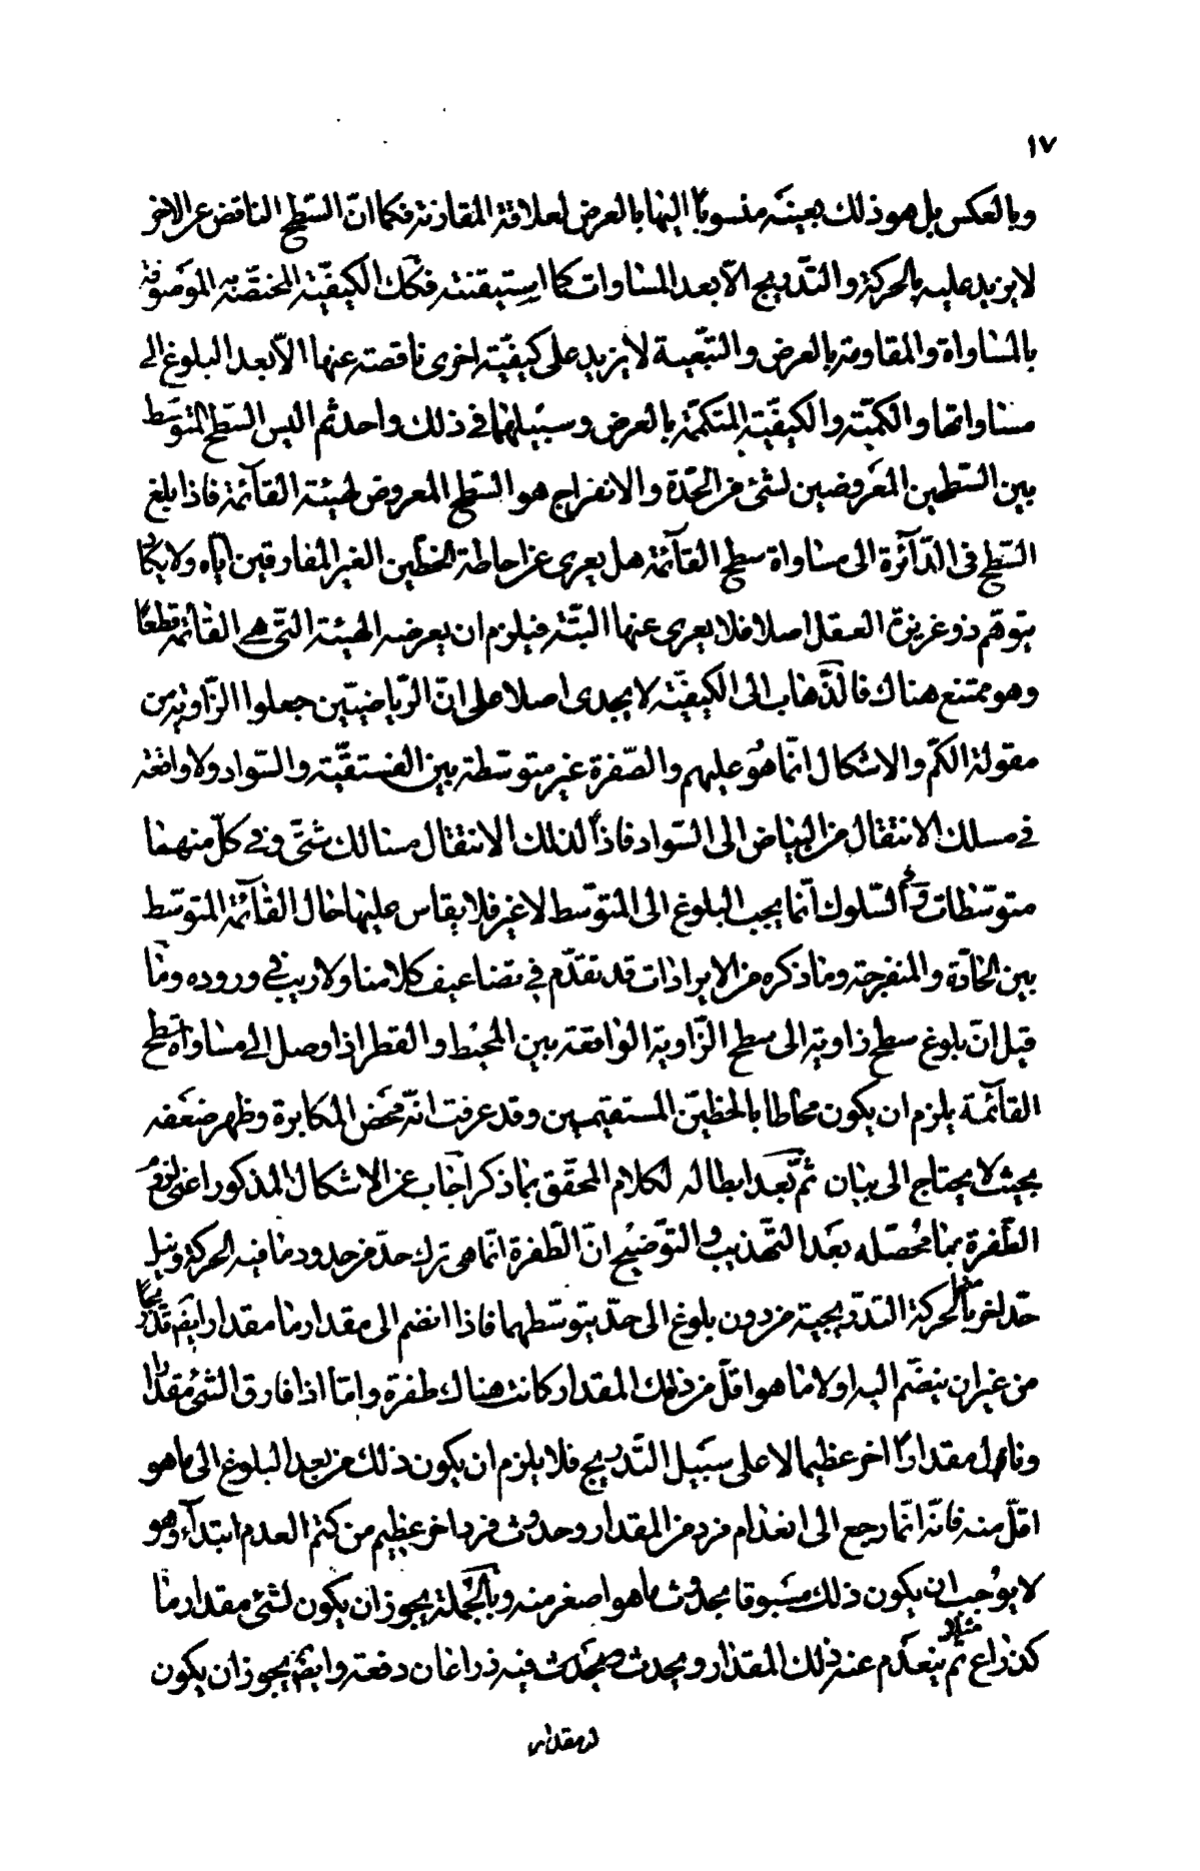 ١٧
وبالعكس بل هو ذلك بعينه منسوبا اليها بالعرض لعلاقة المقارنة فكما انّ السّطح الناقص عن الاخر
لا يزيد عليه بالحركة والتّدريج الّا بعد المساوات كما استيقنته فكك الكيفيّة المختصّة به الموصوفة
بالمساواة والمقاومة بالعرض والتبّعية لا يزيد على كيفيّة اخرى ناقصة عنها الّا بعد البلوغ الى
مساواتها والكميّة والكيفيّة المتكممّة بالعرض وسبيلهما في ذلك واحد ثم اليس السّطح المتوسّط
بين السّطحين المعروضين لشئ من الحّدة والانفراج هو السّطح المعروض لهيئة القآئمة فاذا بلغ
السّطح في الدّآئرة الى مساواة سطح القآئمة هل يعرى عن احاطة الخطّين الغير المفارقين ايّاه ولا يكاد
يتوهّم ذو غريزة العقل اصلا فلا يعرى عنها البتّة فيلزم ان يعرضه الهيئة التّى هى القائمة قطعًا
وهو ممتنع هناك فالذّهاب الى الكيفيّة لا يجدى اصلا على انّ الرّياضييّن جعلوا الزّاوية من
مقولة الكمّ والاشكال انمّا هو عليهم والصّفرة غير متوسّطة بين الفستقيّة والسّواد ولا واقعة
في مسلك الانتقال من البياض الى السّواد فاذاً لذلك الانتقال مسالك شتّى وفى كلّ منهما
متوسّطات وفى السّلوك انّما يجب البلوغ الى المتوسّط لا غير فلا يقاس عليها حال القآئمة المتوسّط
بين الحادّة والمنفرجة وما ذكره من الايرادات قد تقدّم في تضاعيف كلامنا ولا ريب في وروده وما
قيل انّ بلوغ سطح زاوية الى سطح الزّاوية الواقعة بين المحيط والقطر اذا وصل الى مساواة سطح
القآئمة يلزم ان يكون محاطا بالخطيّن المستقيمين وقد عرفت انّه محض المكابرة وظهر ضعفه
بحيث لا يحتاج الى بيان ثمّ بعد ابطاله لكلام المحقّق بما ذكر اجاب عن الاشكال المذكور اعنى لزوم
الطّفرة بما محصّله بعد التّهذيب والتّوضيح انّ الطّفرة انّما هى ترك حدّ من حدود ما فيه الحركة ونيل
حّد اخر بالحركة التدّريجية من دون بلوغ الى حدّ يتوسّطهما فاذا انضم الى مقدار ما مقدار ايض تدريجًا
من غير ان ينضّم اليه اولا ما هو اقلّ من ذلك المقدار كانت هناك طفرة وامّا اذا فارق الشئ مقدارا
ونال مقدارًا اخر عظيما لا على سبيل التّدريج فلا يلزم ان يكون ذلك من بعد البلوغ الى ما هو
اقلّ منه فانّه انّما رجع الى انعدام فرد من المقدار وحدوث فرد اخر عظيم من كتم العدم ابتدآء وهو
لا يوُجب ان يكون ذلك مسبوقا بحدوث ما هو اصغر منه وبالجُملة يجوز ان يكون لشئ مقدار ما
كذراع مثلا ثم ينعدم عنه ذلك المقدار ويحدث فيه ذراعان دفعة وايض يجوز ان يكون
له مقدار